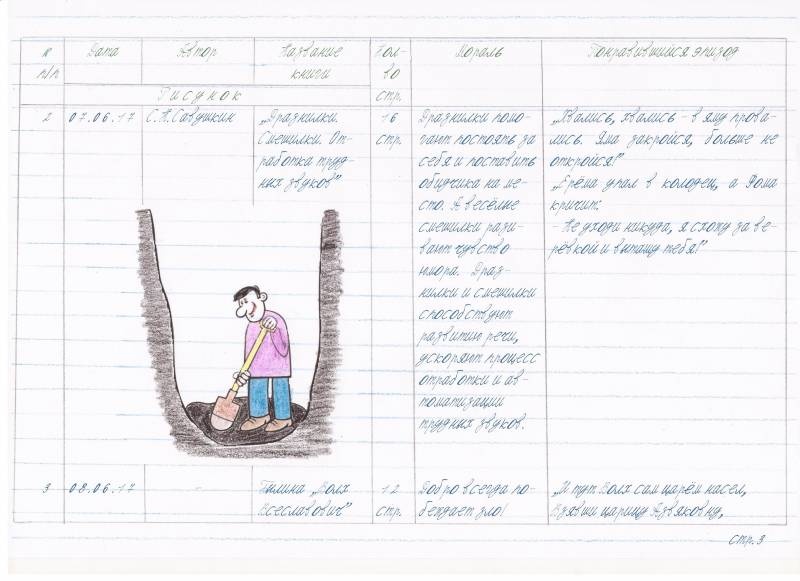 № п/п
Дата
Автор
Название книги
Кол-во стр.
Мораль
Понравившийся эпизод
Рисунок
2
07.06.17
С.Н.Савушкин
„Дразнилки.
Смешилки. От-
работка труд-
ных звуков”
16
стр.
Дразнилки помо-
гают постоять за
себя и поставить
обидчика на ме-
сто. А весёлые
смешилки разви-
вают чувство
юмора. Драз-
нилки и смешилки
способствуют
развитию речи,
ускоряют процесс
отработки и ав-
томатизации
трудных звуков.
„Хвались, хвались – в яму прова-
лись. Яма закройся, больше не
откройся!”
„Ерёма упал в колодец, а Фома
кричит:
– Не уходи никуда, я схожу за ве-
рёвкой и вытащу тебя!”
3
08.06.17
-
Былина „Волх
Всеславович”
12
стр.
Добро всегда по-
беждает зло!
„И тут Волх сам царём насел,
Взявши царицу Азвяковну,
стр. 3